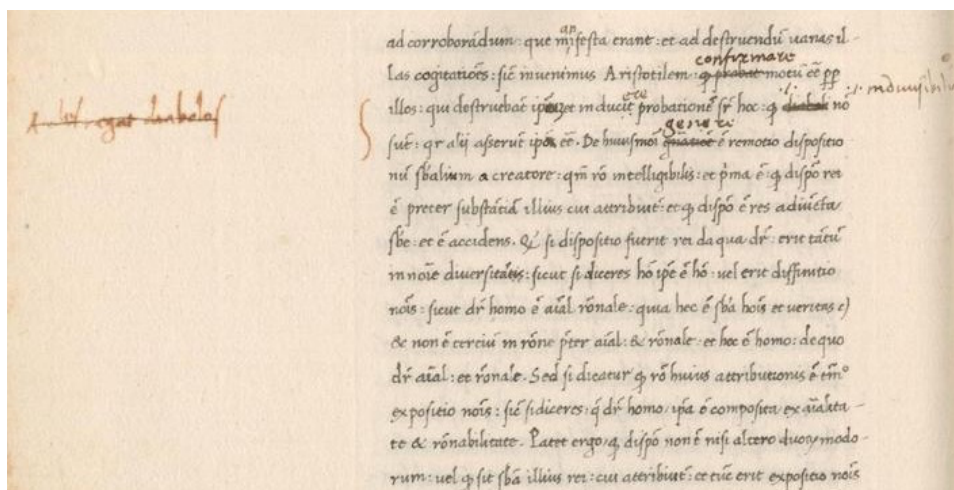 ad corroborādum: que māifesta erant: et ad destruendū uanas il-
las cogitatiões: sic̄ inuenimus Aristotilem: ꝙ probat confirmare motū eē pp
illos: qui destruebāt ip̄ et inducit ere probationē sr̄ hoc: ꝙ nō indiuisibil
A regat diabolos
sūt: qr alij asserūt ip̄ eē. De huiusmōi genere ē remotio dispositio
nū sb̄alium a creatore: qm̄ rō intelligibilis: et p̄ma ē: ꝙ dispō rei
ē preter substātiā illius cui attribuit̄: et ꝙ dispō ē res adiūcta
sbē: et ē accidens. Qȝ si dispositio fuerit rei da qua dr̄: erit tātū
in noīe diuersitatis: sicut si diceres hō ip̄e ē hō: uel erit diffinitio
noīs: sicut dr̄ homo ē aīal rōnale: quia hec ē sb̄a hoīs et ueritas eꝰ
& non ē terciū in rōne p̄ter aīal: & rōnale: et hoc ē homo: de quo
dr̄ aīal: et rōnale. Sed si dicatur ꝙ rō huius attributionis ē tm̄o
expositio noīs: sic̄ si diceres: ꝙ dr̄ homo: ip̄a ē composita ex aīalita-
te & rōnabilitate. Patet ergo ꝙ dispō non ē nisi altero duoꝝ modo-
rum: uel ꝙ sit sb̄a illius rei: cui attribuit̄: et tūc erit expositio noīs